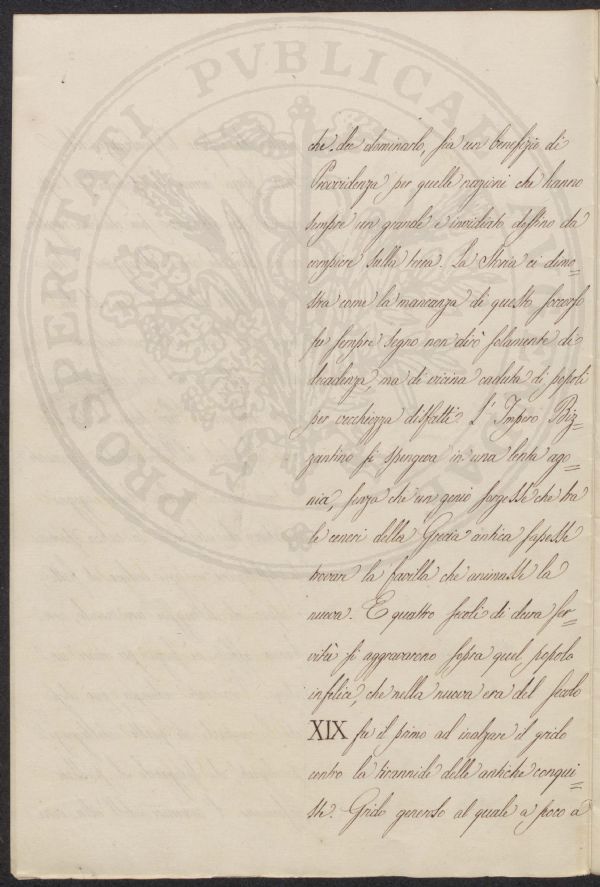 che dee dominarlo, sia un benefizio di
Provvidenza per quelle nazioni che hanno
sempre un grande e invidiato destino da
compiere sulla terra. La Storia ci dimo=
stra come la mancanza di questo soccorso
fu sempre segno non dirò solamente di
decadenza, ma di vicina caduta di popoli
per vecchiezza disfatti. L'Impero Biz=
zantino si spengeva in una lenta ago=
nia, senza che un genio sorgesse che tra
le ceneri della Grecia antica sapesse
trovare la favilla che animasse la
nuova. E quattro secoli di dura ser=
vitù si aggravarono sopra quel popolo
infelice, che nella nuova era del secolo
XIX fu il primo ad inalzare il grido
contro la tirannide delle antiche conqui=
ste. Grido generoso al quale a poco a
PROSPERITATI PVBLICAE